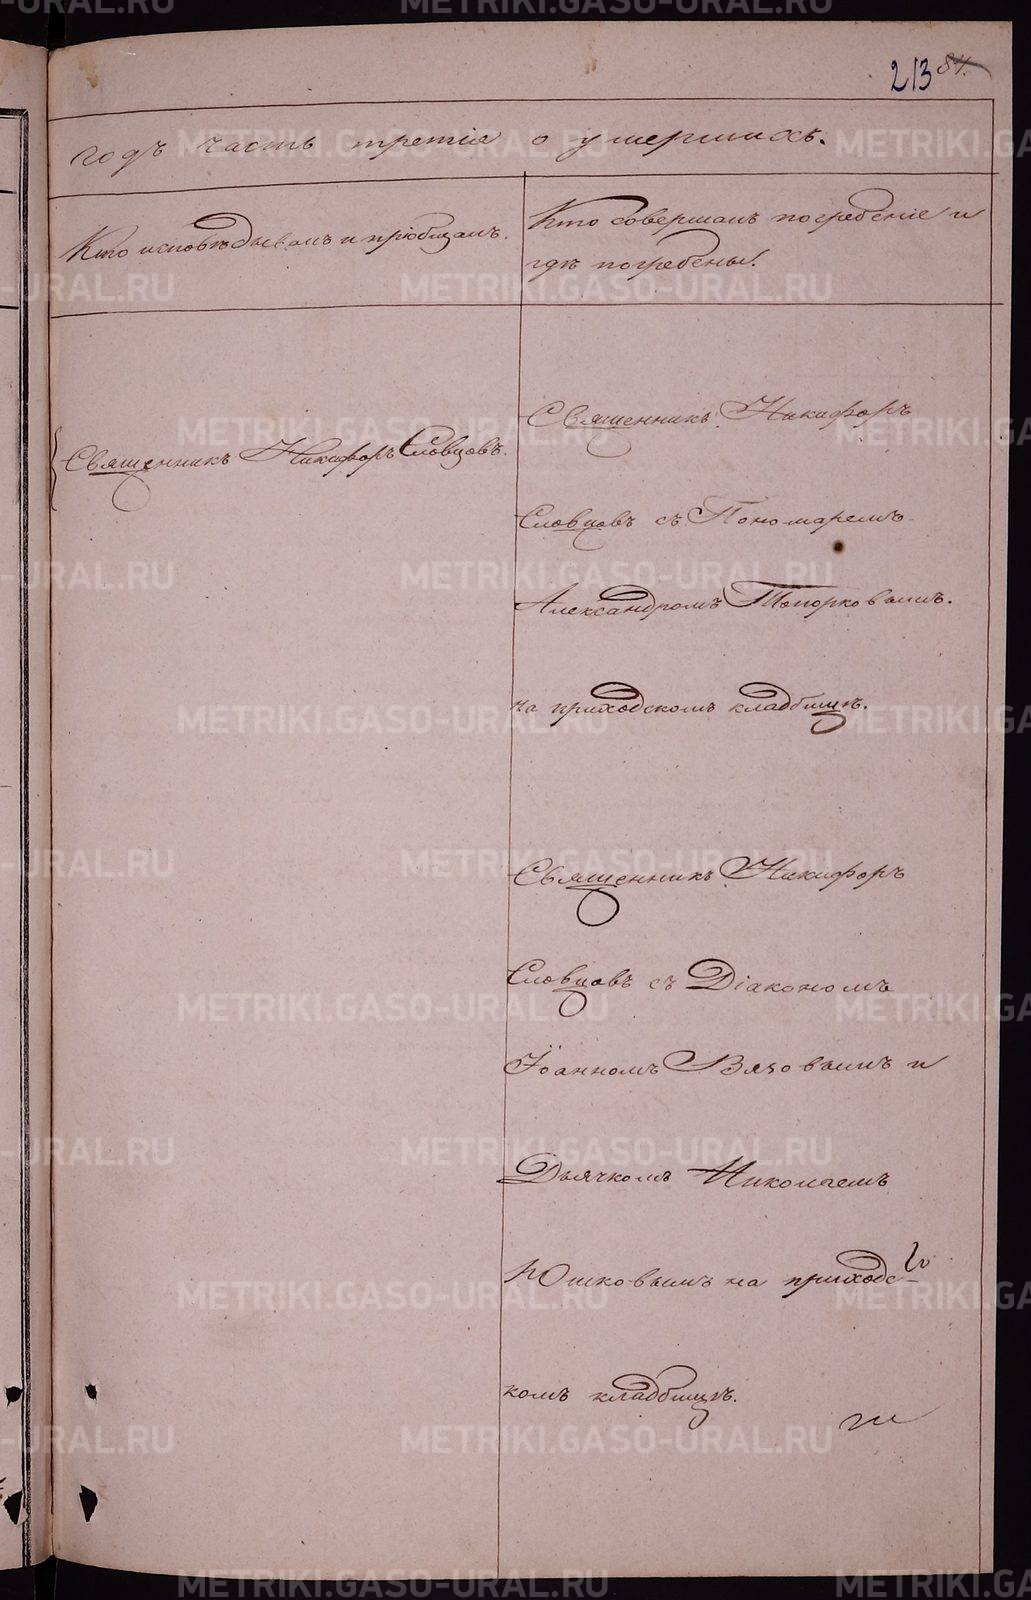 213 84.
годъ часть третіе о умершихъ.
Кто исповѣдывалъ и пріобщалъ.
Кто совершалъ погребеніе и
гдѣ погребены.
Священникъ Никифоръ Словцовъ.
Священникъ Никифоръ
Словцовъ съ Пономаремъ
Александромъ Топорковымъ.
на приходскомъ кладбищѣ.
Священникъ Никифоръ
Словцовъ съ Діакономъ
Іоанномъ Вязовымъ и
Дьячкомъ Николаемъ
Юшковымъ на приходс-
комъ кладбищѣ.
METRIKI.GASO-URAL.RU